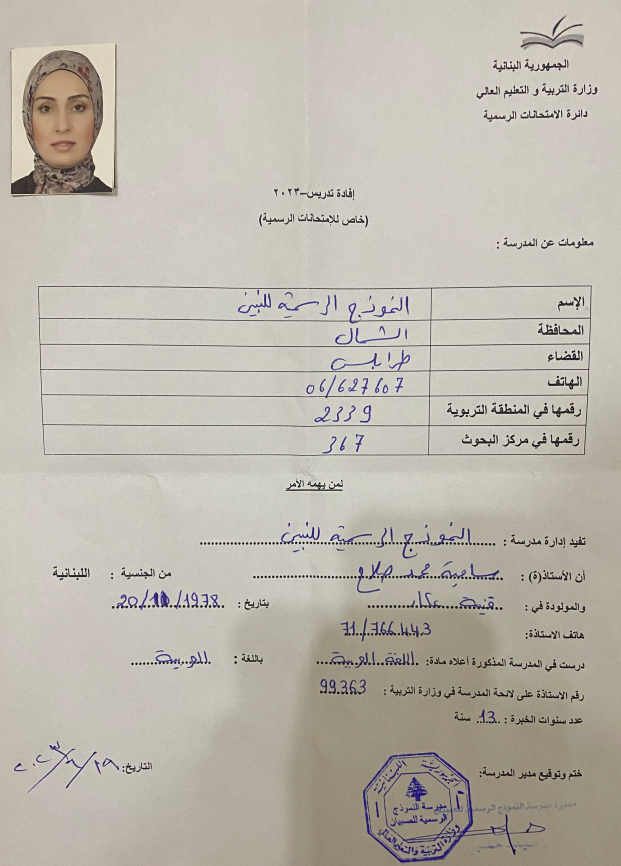 الجمهورية البنانية
وزارة التربية و التعليم العالي
دائرة الامتحانات الرسمية
إفادة تدريس–٢٠٢٣
(خاص للإمتحانات الرسمية)
معلومات عن المدرسة :
الإسم النموذج الرسمية للبنين
المحافظة الشمال
القضاء طرابلس
الهاتف 06/627607
رقمها في المنطقة التربوية 2339
رقمها في مركز البحوث 367
لمن يهمه الأمر
تفيد إدارة مدرسة : النموذج الرسمية للبنين
أن الأستاذ(ة) : سامية محمد صلاح من الجنسية : اللبنانية
والمولودة في : عكار بتاريخ : 20/11/1978
هاتف الاستاذة: 71/766443
درست في المدرسة المذكورة أعلاه مادة: اللغة العربية باللغة : العربية
رقم الاستاذة على لائحة المدرسة في وزارة التربية : 99363
عدد سنوات الخبرة : 13 سنة
ختم وتوقيع مدير المدرسة: التاريخ:
الجمهورية اللبنانية
مدرسة النموذج
الرسمية للصبيان
وزارة التربية والتعليم العالي
مديرة مدرسة النموذج الرسمية للصبيان